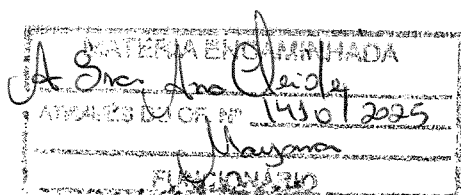 MATÉRIA ENCAMINHADA
A Sra. Ana Cleide
ATRAVÉS DO OF. Nº 1410/2025
FUNCIONÁRIO